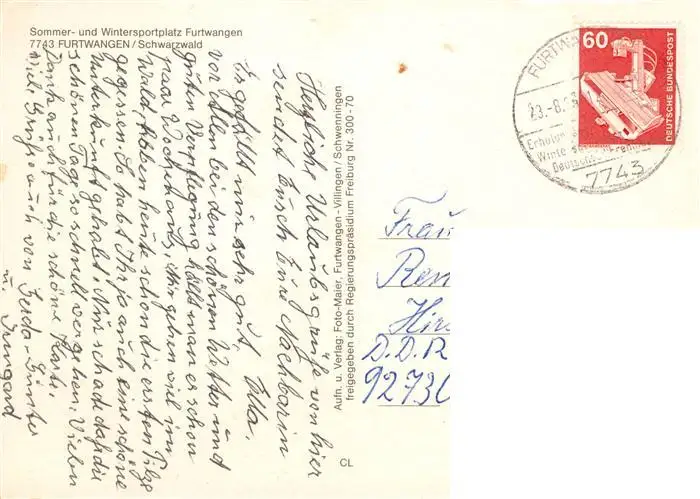 Sommer- und Wintersportplatz Furtwangen
7743 FURTWANGEN / Schwarzwald
Herzliche Urlaubsgrüße von hier
sendet Euch Eure Nachbarin
Ella.
Es gefällt mir sehr gut,
vor allem bei den schönen Wetter und
guten Verpflegung hält man es schon
paar Wochen aus, wir gehen viel im
Wald, haben heute schon die ersten Pilze
gegessen. So habt Ihr ja auch eine schöne
Unterkunft gehabt. Nur schad, daß die
schönen Tage so schnell vergehen. Vielen
Dank auch für die schöne Karte.
Viele Grüße auch von Gerda - Günter
u. Irmgard
Aufn. u. Verlag: Foto-Maier, Furtwangen - Villingen / Schwenningen
freigegeben durch Regierungspräsidium Freiburg Nr. 300-70
CL
FURTWA
23.-8.
Erholun
Winte
Deutsch
7743
60
DEUTSCHE BUNDESPOST
Frau
Ren
Hir
D.D.R
9273